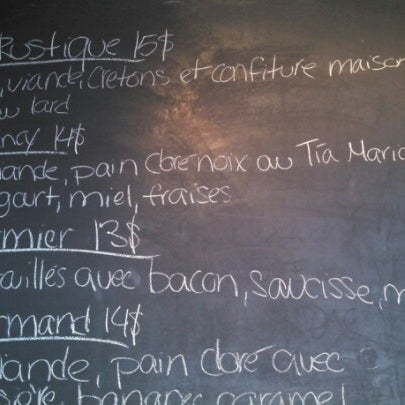 Rustique 15$
, viande, Cretons et confiture maison
au lard
ncy 14$
iande, pain doré noix au Tia Maria
gourt, miel, fraises
rmier 13$
ouillés avec bacon, saucisse, m
rmand 14$
iande, pain doré avec
bananes caramel